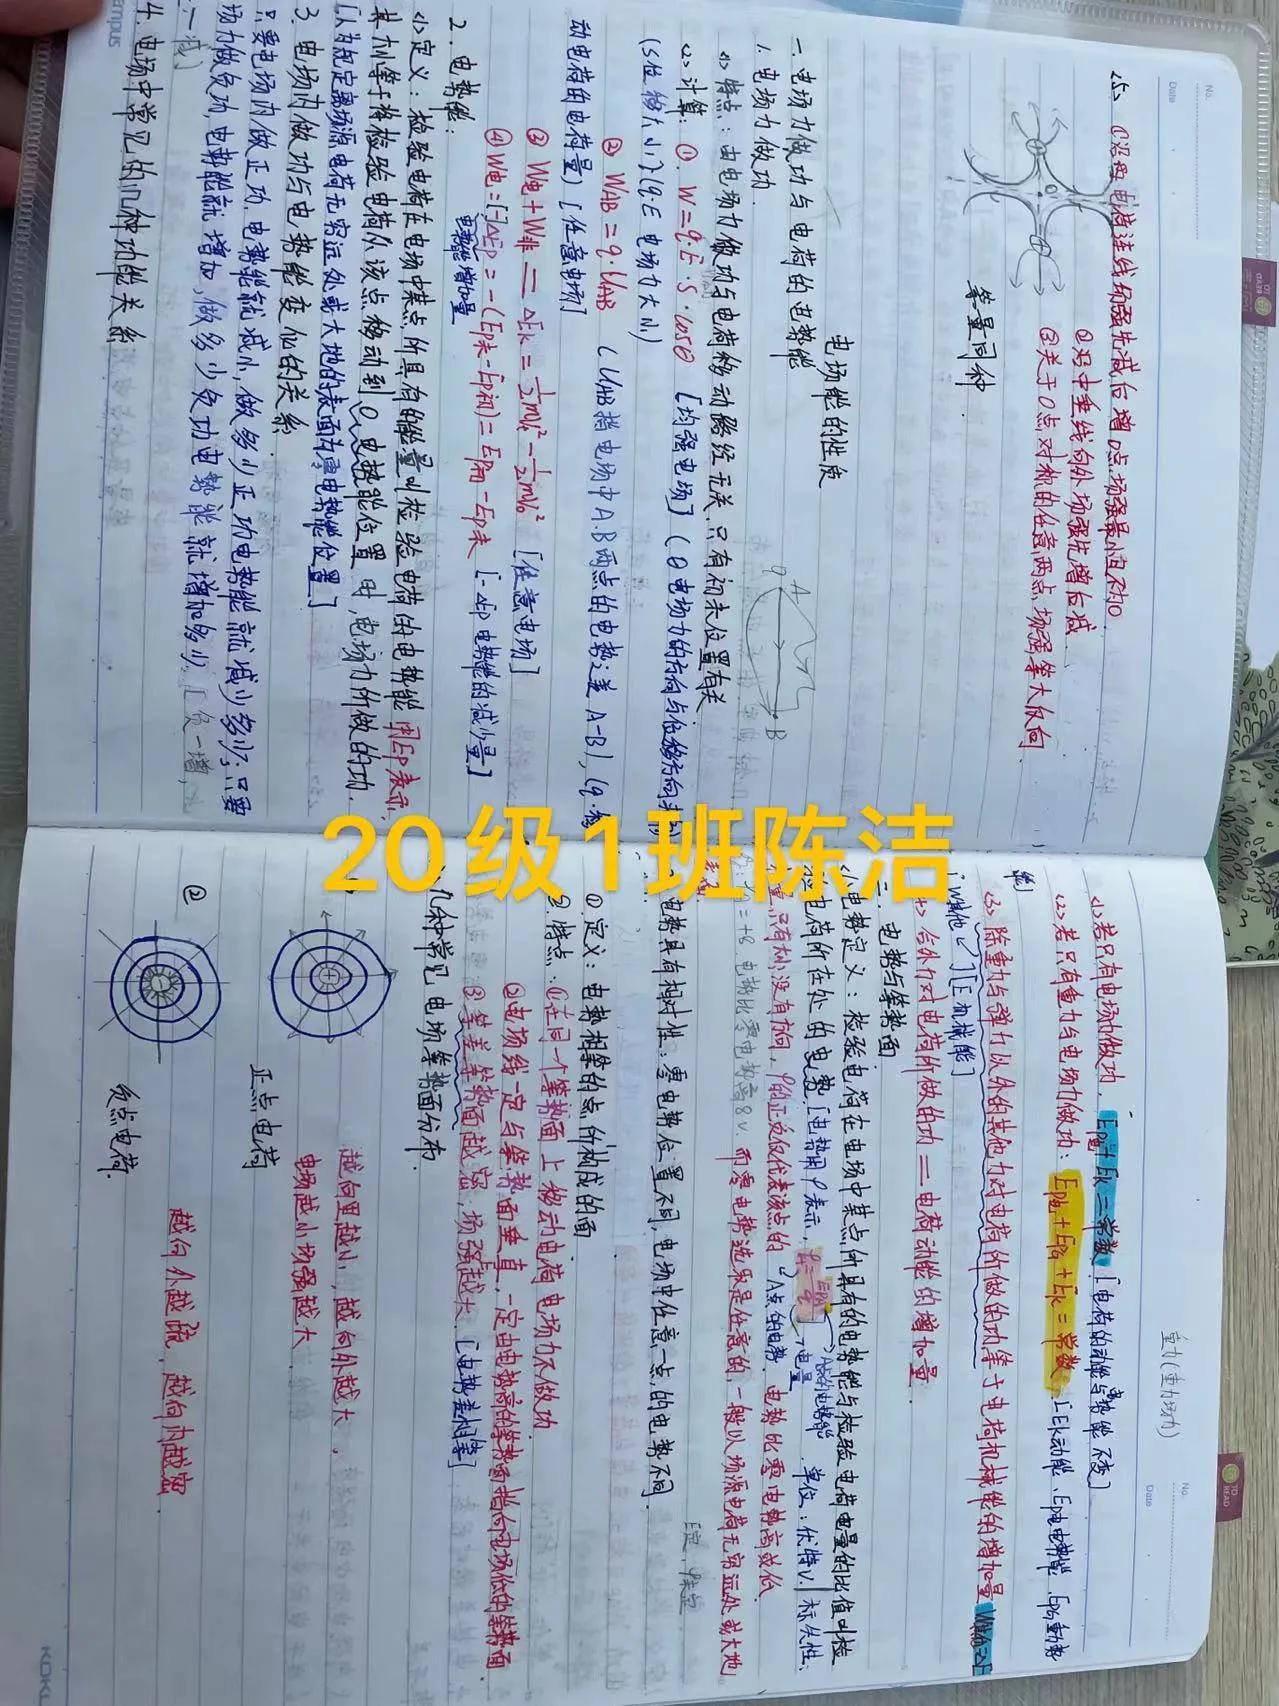 No.
Date
<5> ①沿两电荷连线场强先减后增O点场强最小但不为0
②沿中垂线向外场强先增后减
③关于O点对称的任意两点场强等大反向
等量同种
电场能的性质
一.电场力做功与电荷的电势能
1.电场力做功
<1>特点:由电场力做功与电荷移动路径无关,只有初末位置有关
A
B
q
<2>计算:① W=q·E·S·cosθ [均强电场](θ电场力的方向与位移方向夹角)
(S位移大小)(q·E电场力大小)
② WAB=q·UAB (UAB指电场中A.B两点的电势之差A-B),(q·移
动电荷的电荷量)[任意电场]
③ W电+W非=△Ek=½mV²-½mV₀² [任意电场]
④ W电=[-]△EP=-(EP末-EP初)=EP初-EP末 [-△EP电势能的减少量]
电势能增加量
2.电势能:
<1>定义:检验电荷在电场中某点所具有的能量叫检验电荷的电势能用EP表示,
其大小等于将检验电荷从该点移动到O电势能位置时,电场力所做的功.
[人为规定离场源电荷无穷远处或大地的表面为零电势能位置]
3.电场内做功与电势能变化的关系
只要电场内做正功,电势能就减小,做多少正功电势能就减少多少;只要
场力做负功,电势能就增加,做多少负功电势能就增加多少.[负一增,
一减]
4.电场中常见的几种功能关系
20级1班陈洁
重力(重力场力)
No.
Date
<1>若只有电场力做功, EP电+Ek=常数 [电荷的动能与电势能不变]
<2>若只有重力与电场力做功: EP电+EP重+Ek=常数 [Ek动能、EP电电势能.EP重重力势
能]
<3>除重力与弹力以外的其他力对电荷所做的功等于电荷机械能的增加量
[W其他 E机械能]
<4>合外力对电荷所做的功=电荷动能的增加量
二.电势与等势面
<1>电势定义:检验电荷在电场中某点所具有的电势能与检验电荷电量的比值叫检
验电荷所在处的电势[电势用φ表示,
A点的电势能
电量
单位:伏特V.]标矢性:
只有大小没有方向,φ的正负仅代表该点的
A点的电势
电势比零电势高或低
=+8电势比零电势高8V.而零电势选取是任意的,一般以场源电荷无穷远处或大地
电势具有相对性:零电势位置不同,电场中任意一点的电势不同.
①定义:电势相等的点所构成的面
②特点:①在同一个等势面上移动电荷电场力不做功
②电场线一定与等势面垂直,一定由电势高的等势面指向电场低的等势面
③等差等势面越密,场强越大.[电势差相等]
几种常见电场等势面分布.
越向里越小,越向外越大.
电场越小场强越大
正点电荷
②
越向外越疏,越向内越密
负点电荷.